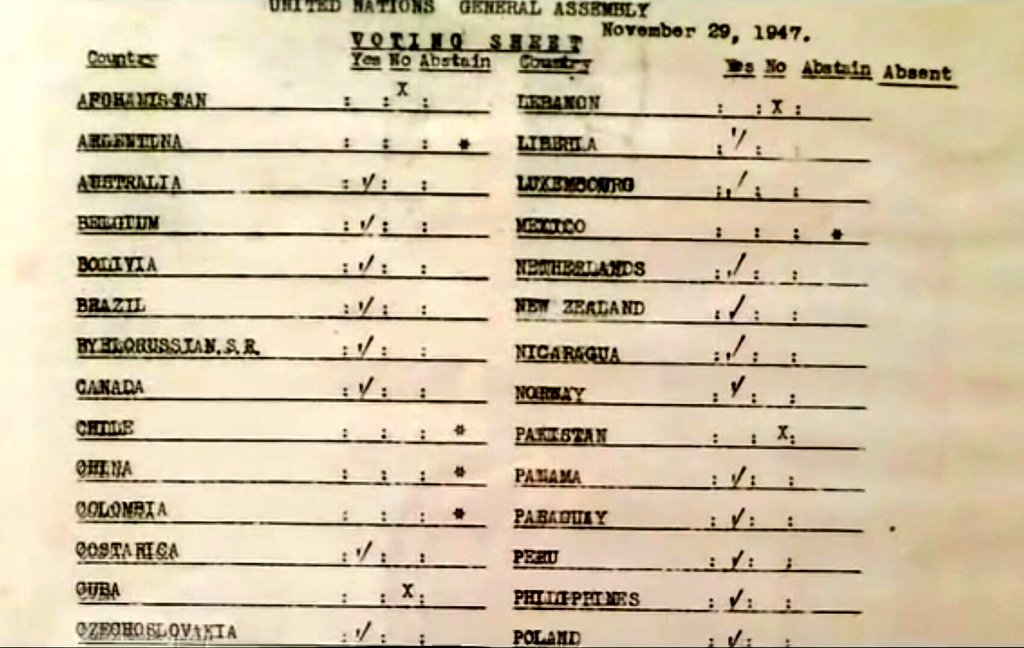 UNITED NATIONS GENERAL ASSEMBLY
November 29, 1947.
VOTING SHEET
Country Yes No Abstain Country Yes No Abstain Absent
AFGHANISTAN : : X : LEBANON : : X :
ARGENTINA : : : * LIBERIA : √ :
AUSTRALIA : √ : : LUXEMBOURG : √ : :
BELGIUM : √ : : MEXICO : : : *
BOLIVIA : √ : : NETHERLANDS : √ : :
BRAZIL : √ : : NEW ZEALAND : √ : :
BYELORUSSIAN.S.R. : √ : : NICARAGUA : √ : :
CANADA : √ : : NORWAY : √ : :
CHILE : : : * PAKISTAN : : X :
CHINA : : : * PANAMA : √ : :
COLOMBIA : : : * PARAGUAY : √ : :
COSTARICA : √ : : PERU : √ : :
CUBA : : X : PHILIPPINES : √ : :
CZECHOSLOVAKIA : √ : : POLAND : √ : :